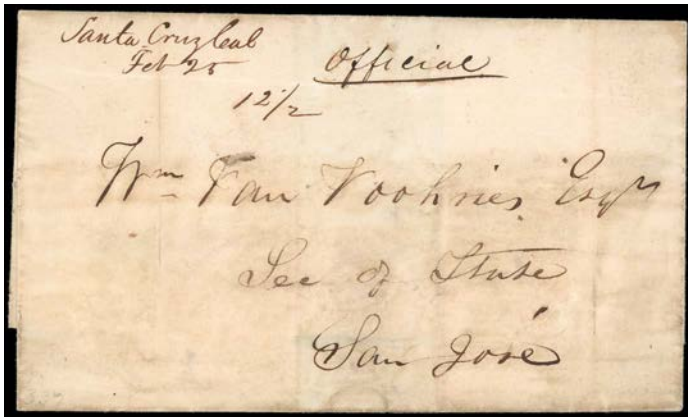 Santa Cruz Cal
Feb 25
Official
12 1/2
Wm Van Voohries Esqr
Sec of State
San José